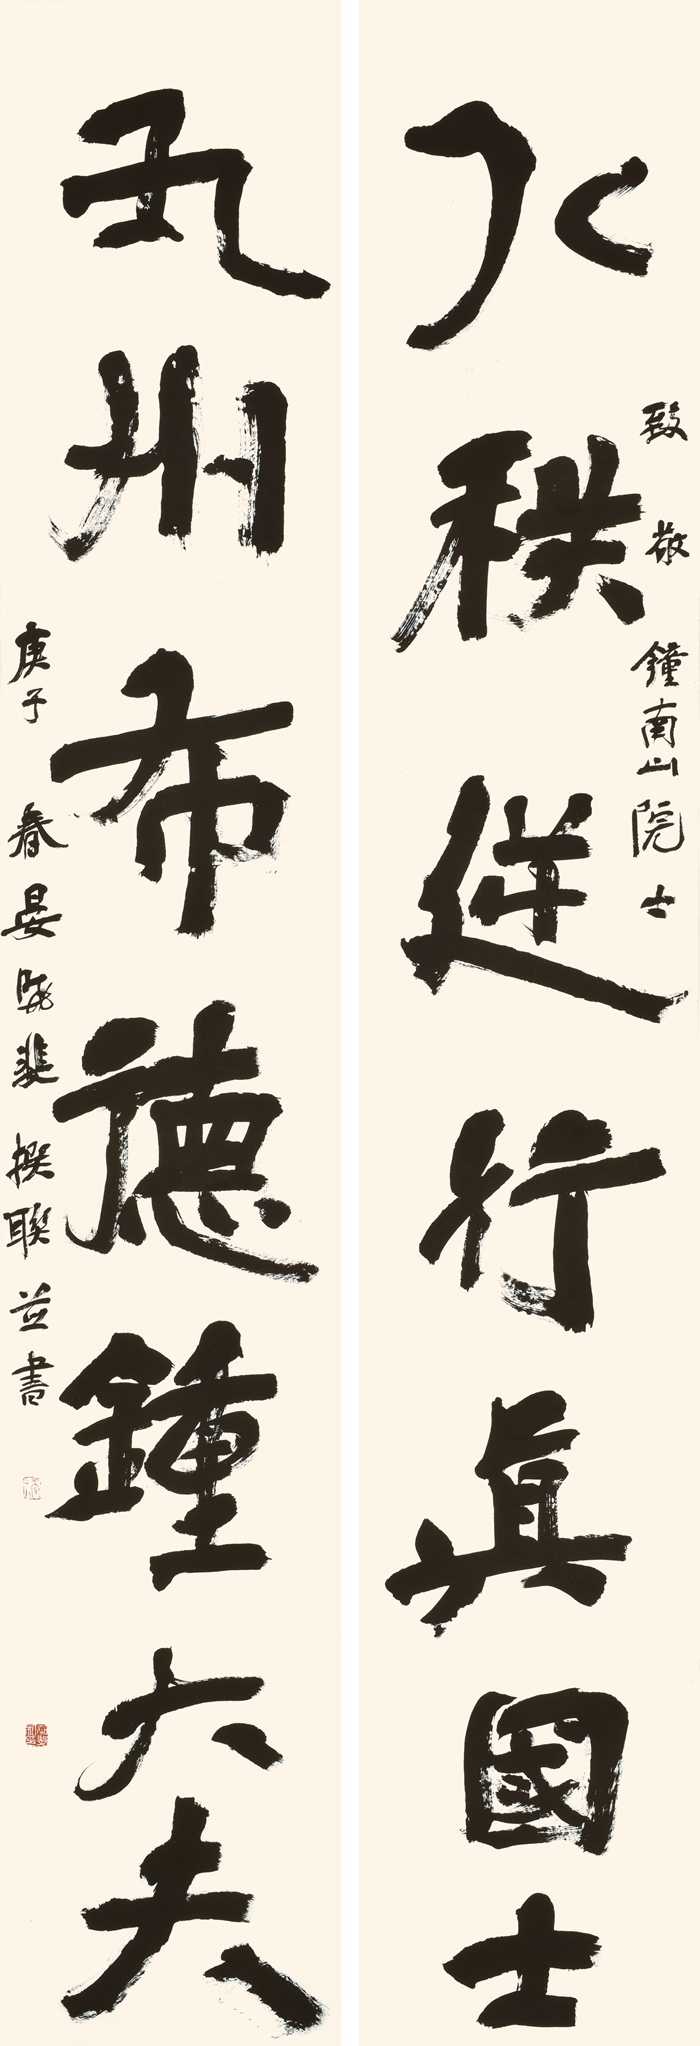 八秩逆行眞國士
致敬鐘南山院士
九州布德鍾大夫
庚子春晏曉斐撰聯並書